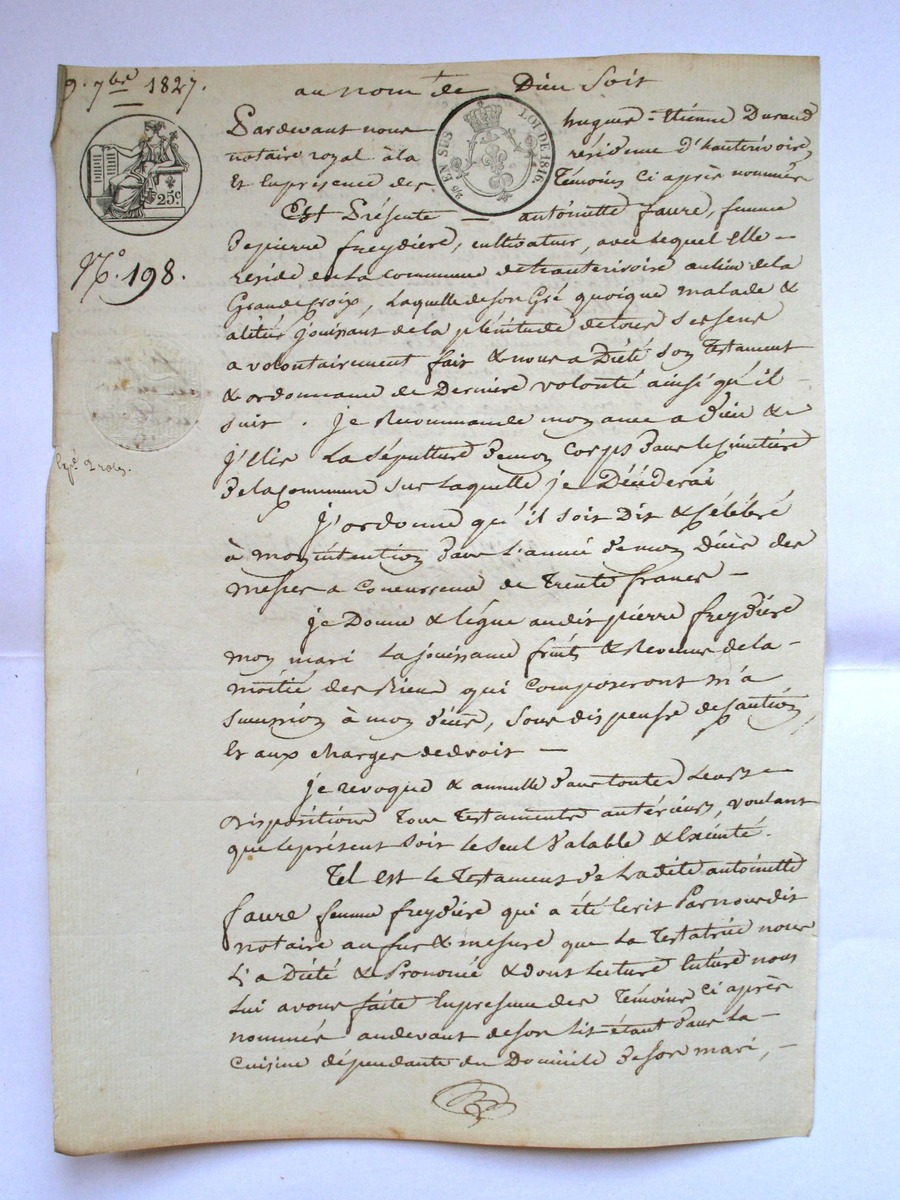 9. 7bre 1827.
au nom de Dieu Soit
Pardevant nous hugues = Etienne Durand
notaire royal à la résidence d'hauterivoire,
Et En présence des Témoins Ci après nommés
Est Présente — antoinette faure, femme
De pierre freydière, cultivateur, avec lequel elle —
réside en La commune de hauterivoire au lieu de la
Grande Croix, Laquelle de Son Gré quoique malade &
alitée jouissant de la plénitude de tous Ses sens
a volontairement fait & nous a Dicté Son Testament
& ordonnance de Dernière volonté ainsi qu'il —
suit. je Recommande mon ame a Dieu &
j'Elis La Sépulture De mon Corps Dans le Cimetière
De la Commune sur Laquelle je Décéderai
J'ordonne qu'il soit Dit & Célébré
à mon intention Dans L'année De mon Décès des
messes a Concurrence de Trente francs —
je Donne & Lègue audit pierre freydière
mon mari La jouissance fruits & Revenus de la —
moitié des Biens qui Composeront m'a
Succession à mon Décès, Sous dispense de Caution,
Et aux Charges de droit —
je revoque & annulle Dans toutes Leurs —
Dispositions Tous Testaments antérieurs, voulant
que le présent Soit le Seul Valable & Exécuté.
Tel est le Testament De Ladite antoinette
faure femme freydière qui a été Ecrit Par nous dit
notaire au fur & mesure que La Testatrice nous
L'a Dicté & Prononcé & dont Lecture Entière nous
Lui avons faite En présence des Témoins Ci après
nommés au devant de son Lit étant Dans La —
Cuisine dépendante du Domicile De Son mari, —
25c
EN SUS
LOI DE 1816.
No. 198.